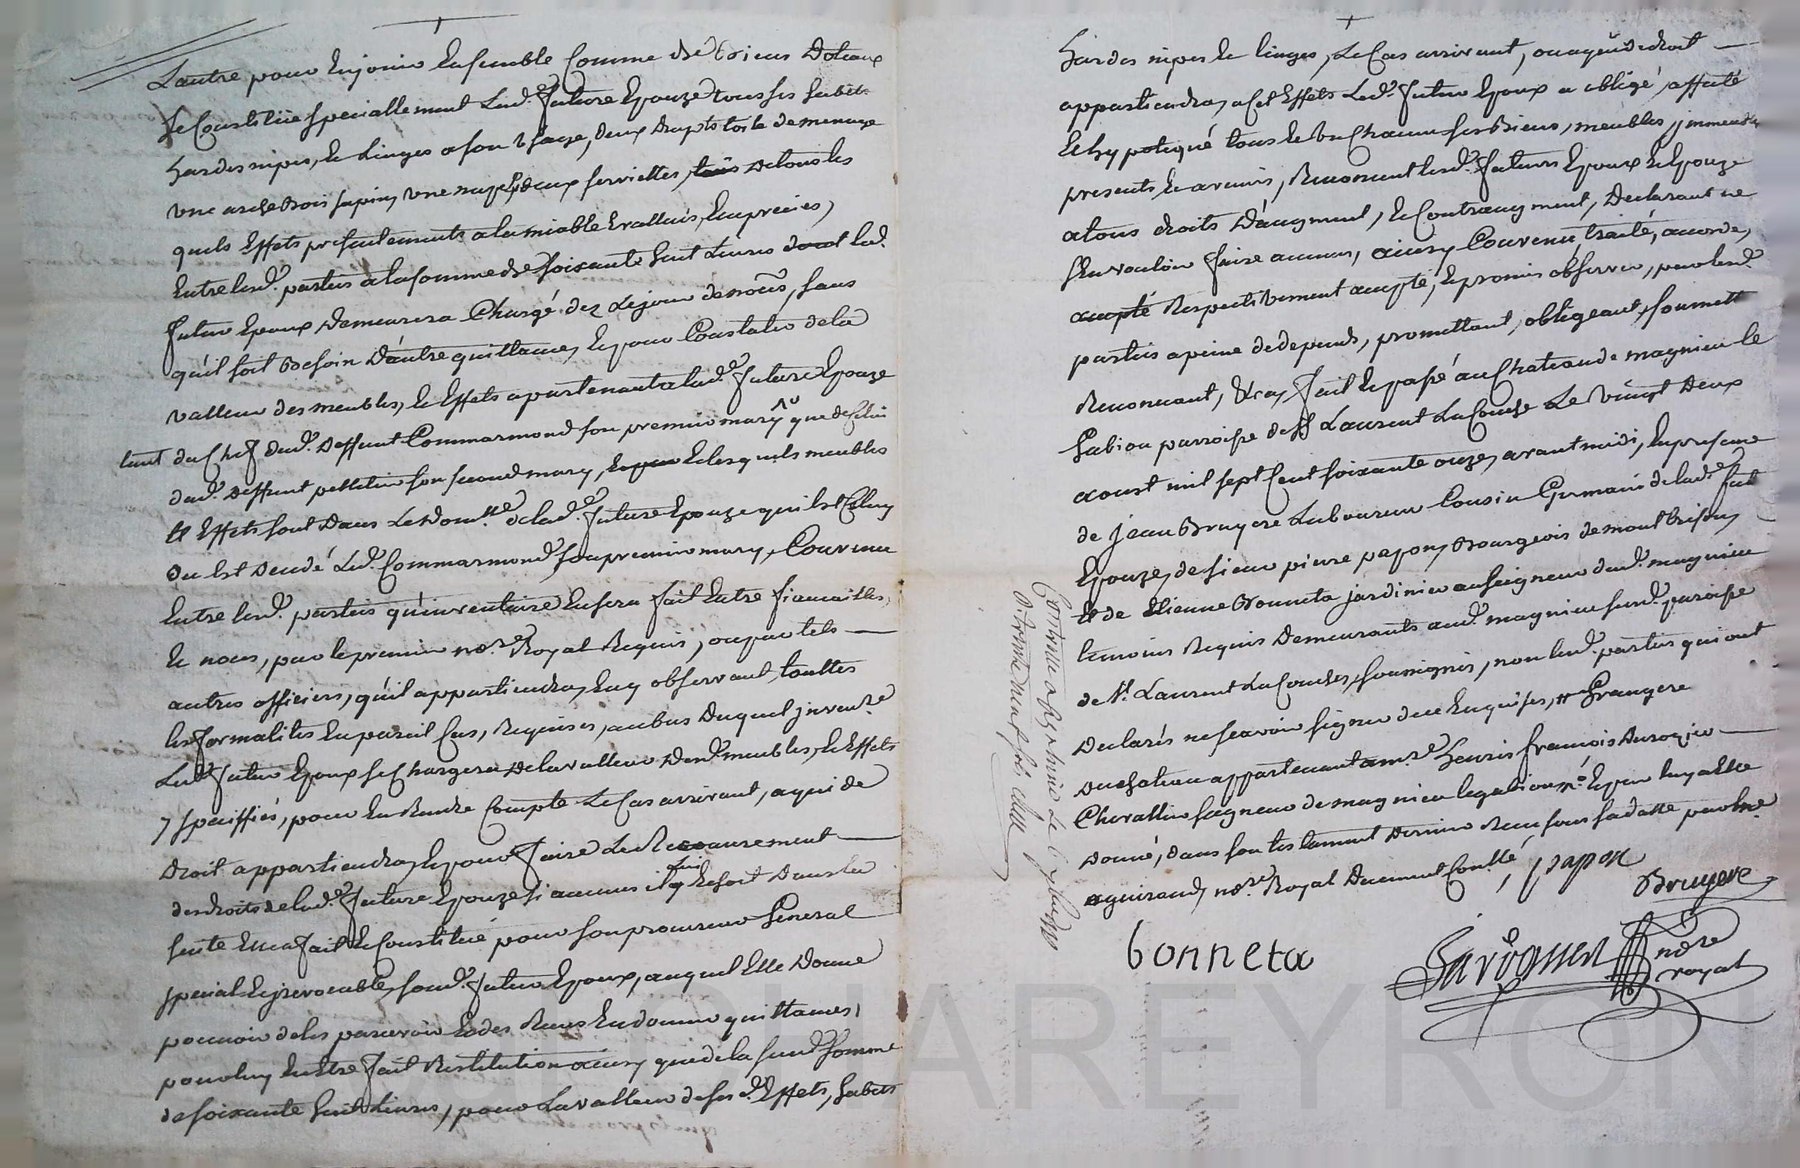 Lautre pour En jouir Ensemble Comme de biens Dotaux
Se Constitue speciallement Lad.e future Epouze tous ses habits
hardes nipes, Et Linges a son Usage, deux draps toile de menage
une arche bois sapin, une nape, deux serviettes, tous Detous les
quels Effets presentements a lamiable Evallués, Enpreciés,
Entre lesd. parties a la somme de soixante huit Livres dont led.
futur Epoux Demeurera Chargé dez Le jour de noces, sans
quil soit Besoin D'autre quittance, Et pour Constater de la
valleur des meubles, Et Effets apartenants a lad.e future Epouze
tant du Chef dud. Deffunt Commarmond son premier mary que de Celui
dud. Deffunt petitin son second mary, Et lesquels meubles
Et Effets sont Dans Le Dom.lle de lad.e future Epouze qui Est Celluy
Ou Est Decedé Led. Commarmond son premier mary, Convenu
Entre lesd. parties qu'inventaire En sera fait Entre fiancailles,
Et noces, par le premier no.re Royal Requis, ou par tels
autres officiers, quil appartiendra, En y observant touttes
les formalités En pareil Cas, Requises, au bas Duquel jnvent.re
Led. futur Epoux se Chargera De la valleur Desd. meubles, Et Effets
y speciffiés, pour En Rendre Compte Le Cas arrivant, a qui de
Droit appartiendra, Et pour faire Le Recouvrement
des droits de lad.e future Epouze si aucuns il y En soit Dans la
suite Elle a fait Et Constitué pour son procureur General
special Et jrrevocable, sond. futur Epoux, auquel Elle Donne
pouvoir de les percevoir Et des Reçus En donner quittances,
pour luy En Etre fait Restitution ainsy que de la susd. somme
de soixante huit Livres, pour La valleur de ses d. Effets, habits
hardes nipes Et linges, Le Cas arrivant, ou a qui de droit
appartiendra, a Cet Effets Led. futur Epoux a obligé, affecté
Et hypotequé tous Et Un Chacun ses Biens, meubles, jmmeubles
presents, Et avenir, Renoncent lesd. futurs Epoux Et Epouze
a tous droits D'augment, Et Contraugment, Declarant ne
s'En vouloir faire aucuns, ainsy Convenu, traité, accordé,
accepté Respectivement accepté, Et promis observer, par lesd.
parties a peine de depends, promettant, obligeant, soumett
Renonçant, &ra, fait Et passé au Chateau de magnieu le
Gabion parroisse de S.t Laurent La Conche Le vingt Deux
aoust mil sept Cent soixante onze, avant midi, En presence
de jean Bruyere Laboureur Cousin Germain de lad.e fut
Epouze, de sieur pierre papon, Bourgeois de montbrison,
Et de Etienne Bonneta jardinier au seigneur dud. magnieu
temoins Requis Demeurants aud. magnieu susd. paroisse
de St. Laurent La Conche, soussignés, non lesd. parties qui ont
Declarés ne scavoir signer de ce Enquises,
Grangere
Du chateau appartenant a m.re henris françois Durozier
Chevallier seigneur de magnieu legation
Donné, Dans son testament Dernier Reçu sous sa datte par
aguiraud, no.re Royal Dument Con.llé, papon
Bruyere
bonneta
no.re
royal